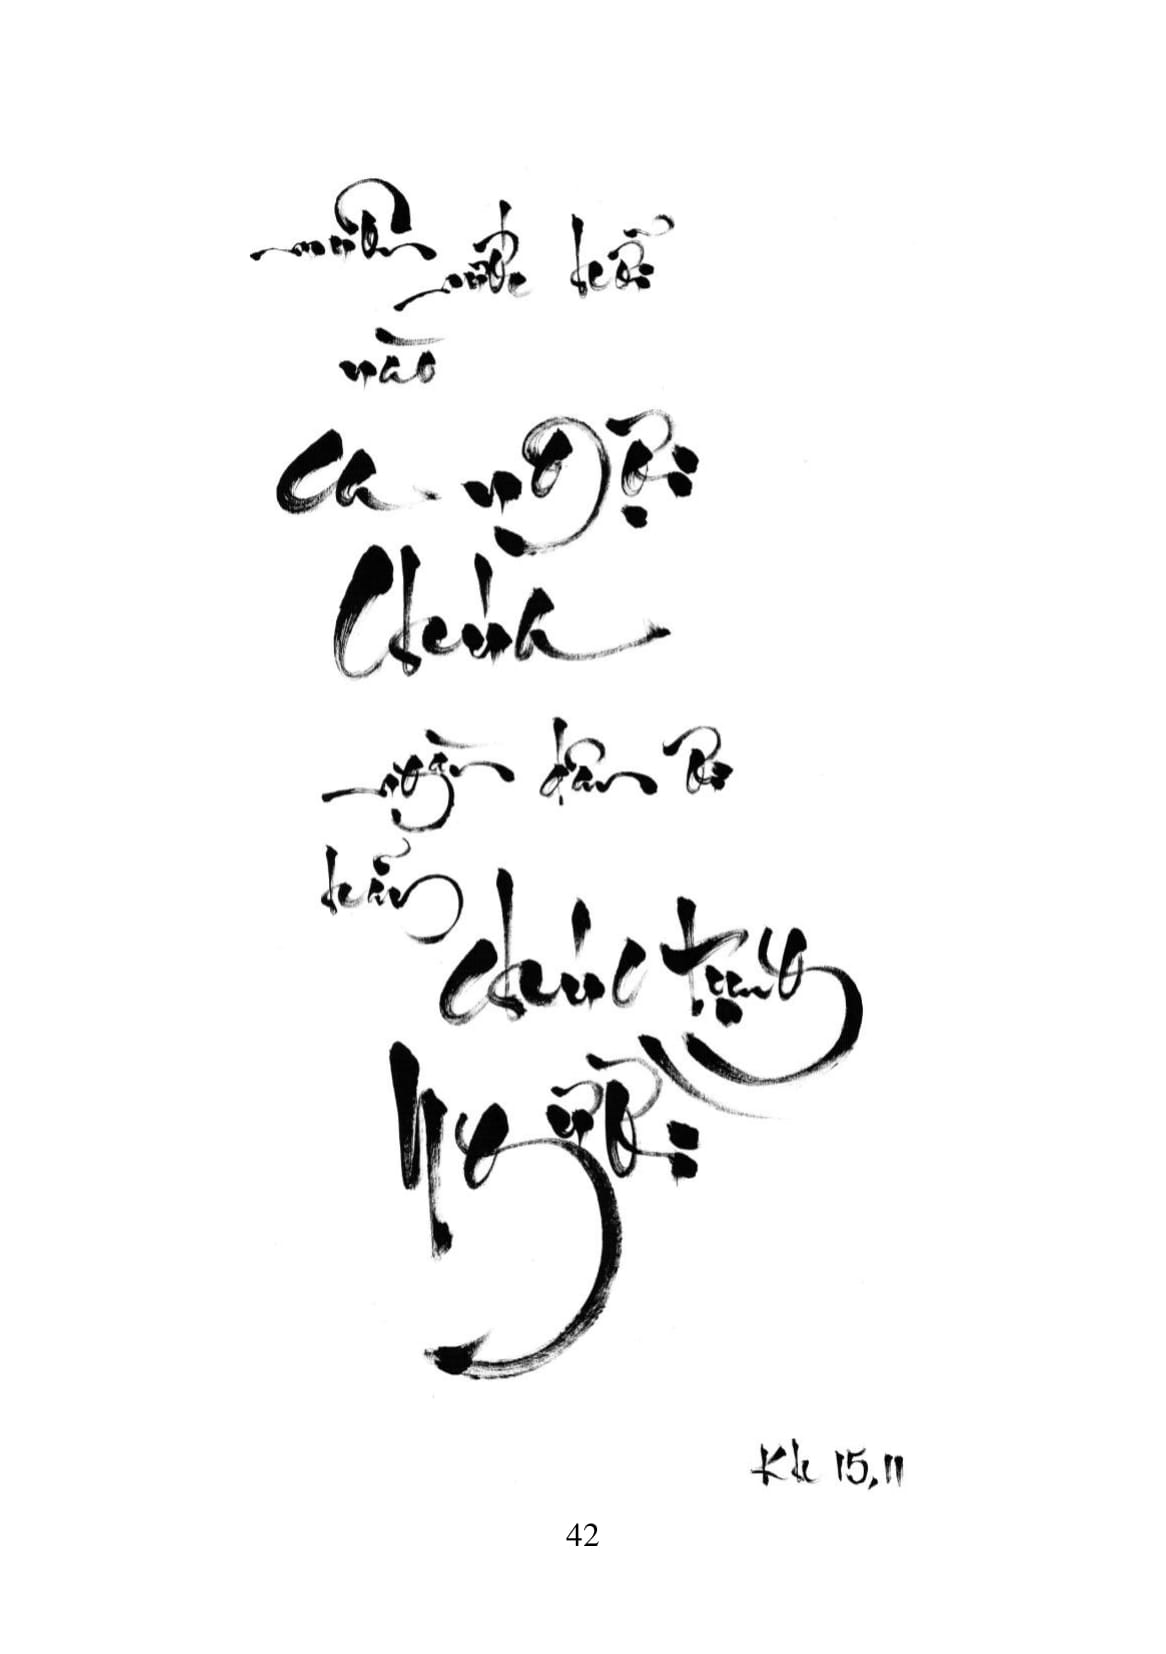 muôn nước hỡi
nào
ca ngợi
Chúa
ngàn dân ơi
hãy chúc tụng
Người
Kh 15,11
42